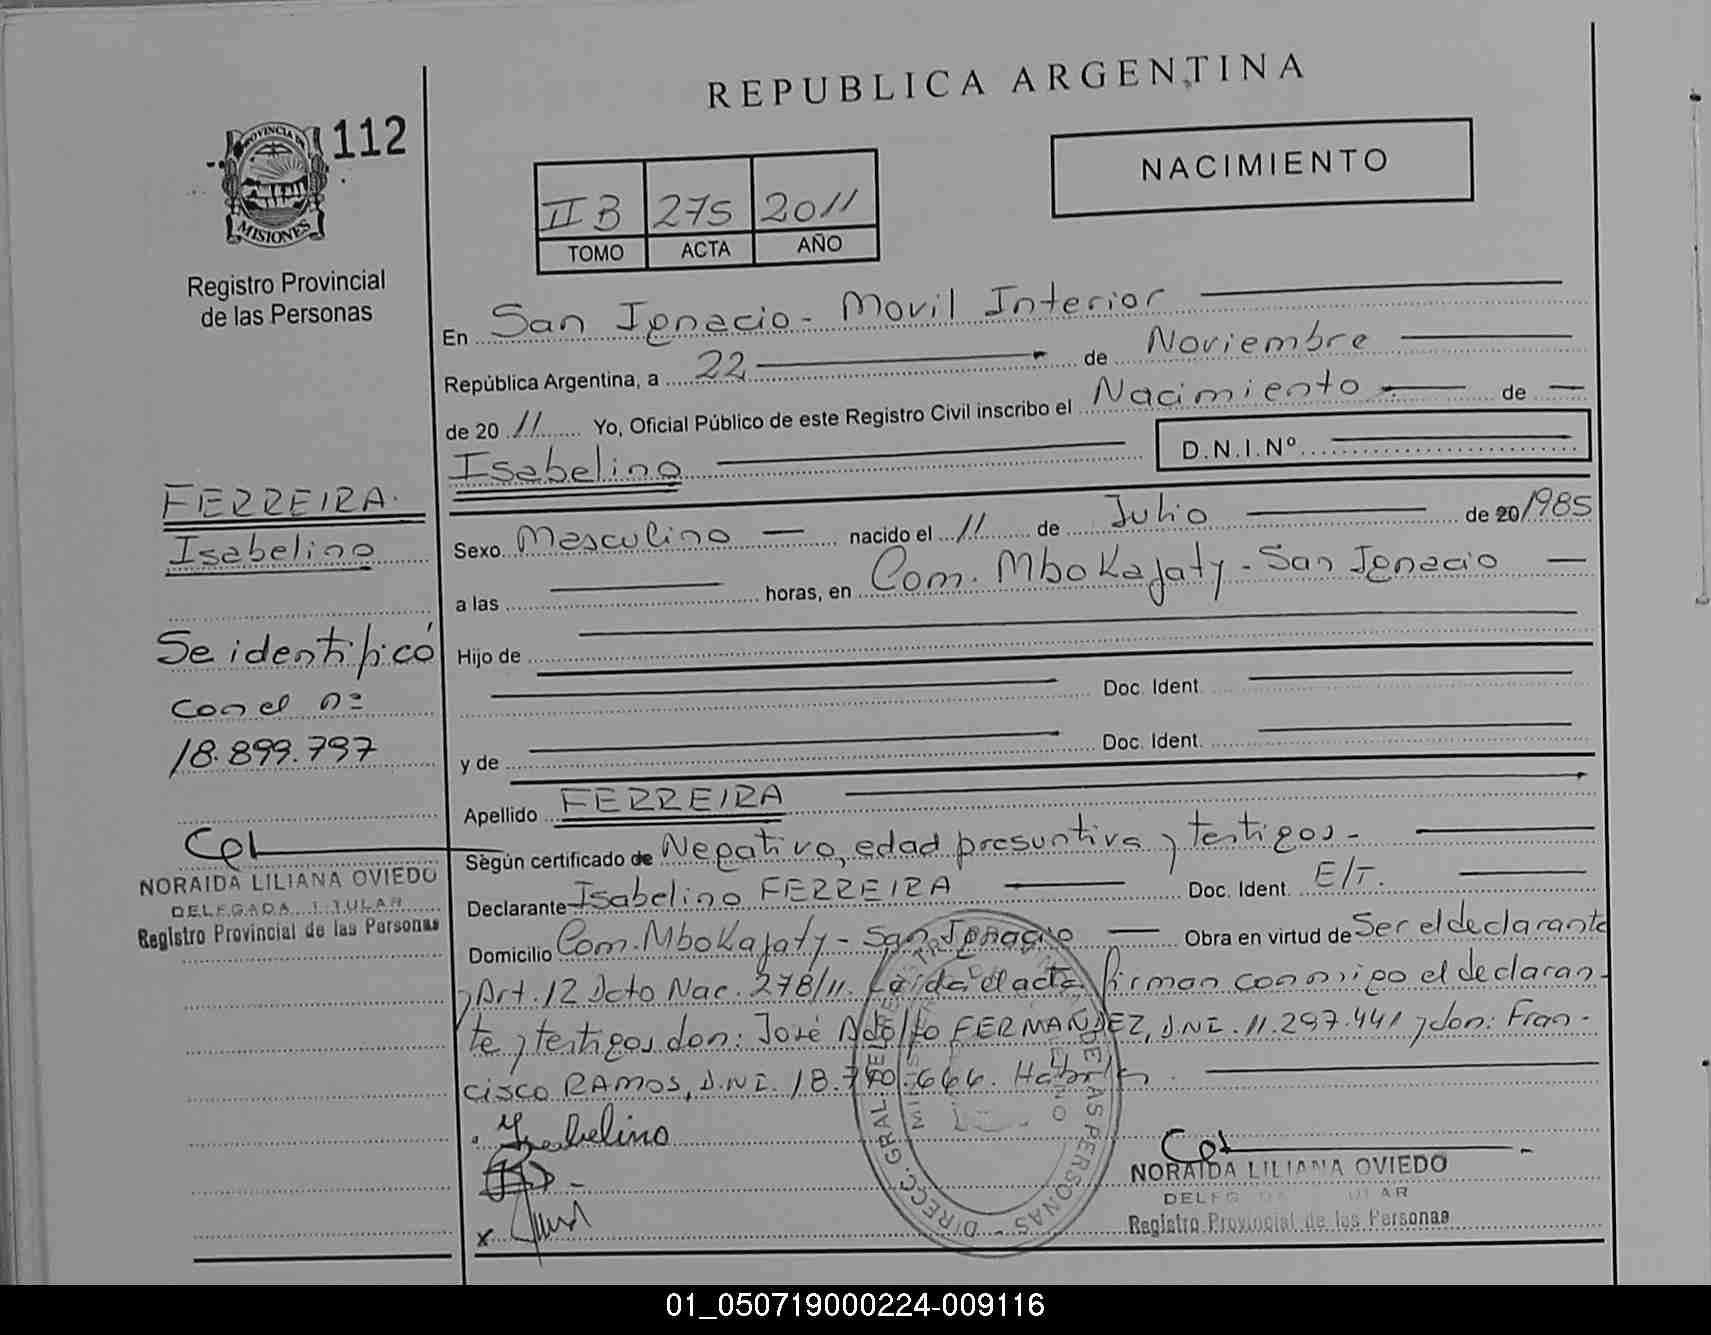 REPUBLICA ARGENTINA
PROVINCIA DE
MISIONES
112
Registro Provincial
de las Personas
NACIMIENTO
II B 275 2011
TOMO ACTA AÑO
En San Ignacio - Movil Interior
República Argentina, a 22 de Noviembre
de 20 11 Yo, Oficial Público de este Registro Civil inscribo el Nacimiento de
Isabelino D.N.I.Nº
FERREIRA
Isabelino
Se identificó
con el nº
18.899.797
NORAIDA LILIANA OVIEDO
DELEGADA TITULAR
Registro Provincial de las Personas
Sexo Masculino nacido el 11 de Julio de 20 1985
a las horas, en Com. Mbokajaty - San Ignacio
Hijo de
Doc. Ident.
y de Doc. Ident.
Apellido FERREIRA
Según certificado de Negativo, edad presuntiva y testigos -
Declarante Isabelino FERREIRA Doc. Ident. E/T.
Domicilio Com. Mbokajaty - San Ignacio Obra en virtud de Ser el declarante
y Art. 12 Dcto Nac. 278/11. Leída el acta firman conmigo el declaran-
te y testigos don: José Adolfo FERNANDEZ, D.N.I. 11.297.441 y don: Fran-
cisco RAMOS, D.N.I. 18.740.666.
Isabelino
DIRECC. GRAL. DE LAS PERSONAS
NORAIDA LILIANA OVIEDO
Registro Provincial de las Personas
01_050719000224-009116